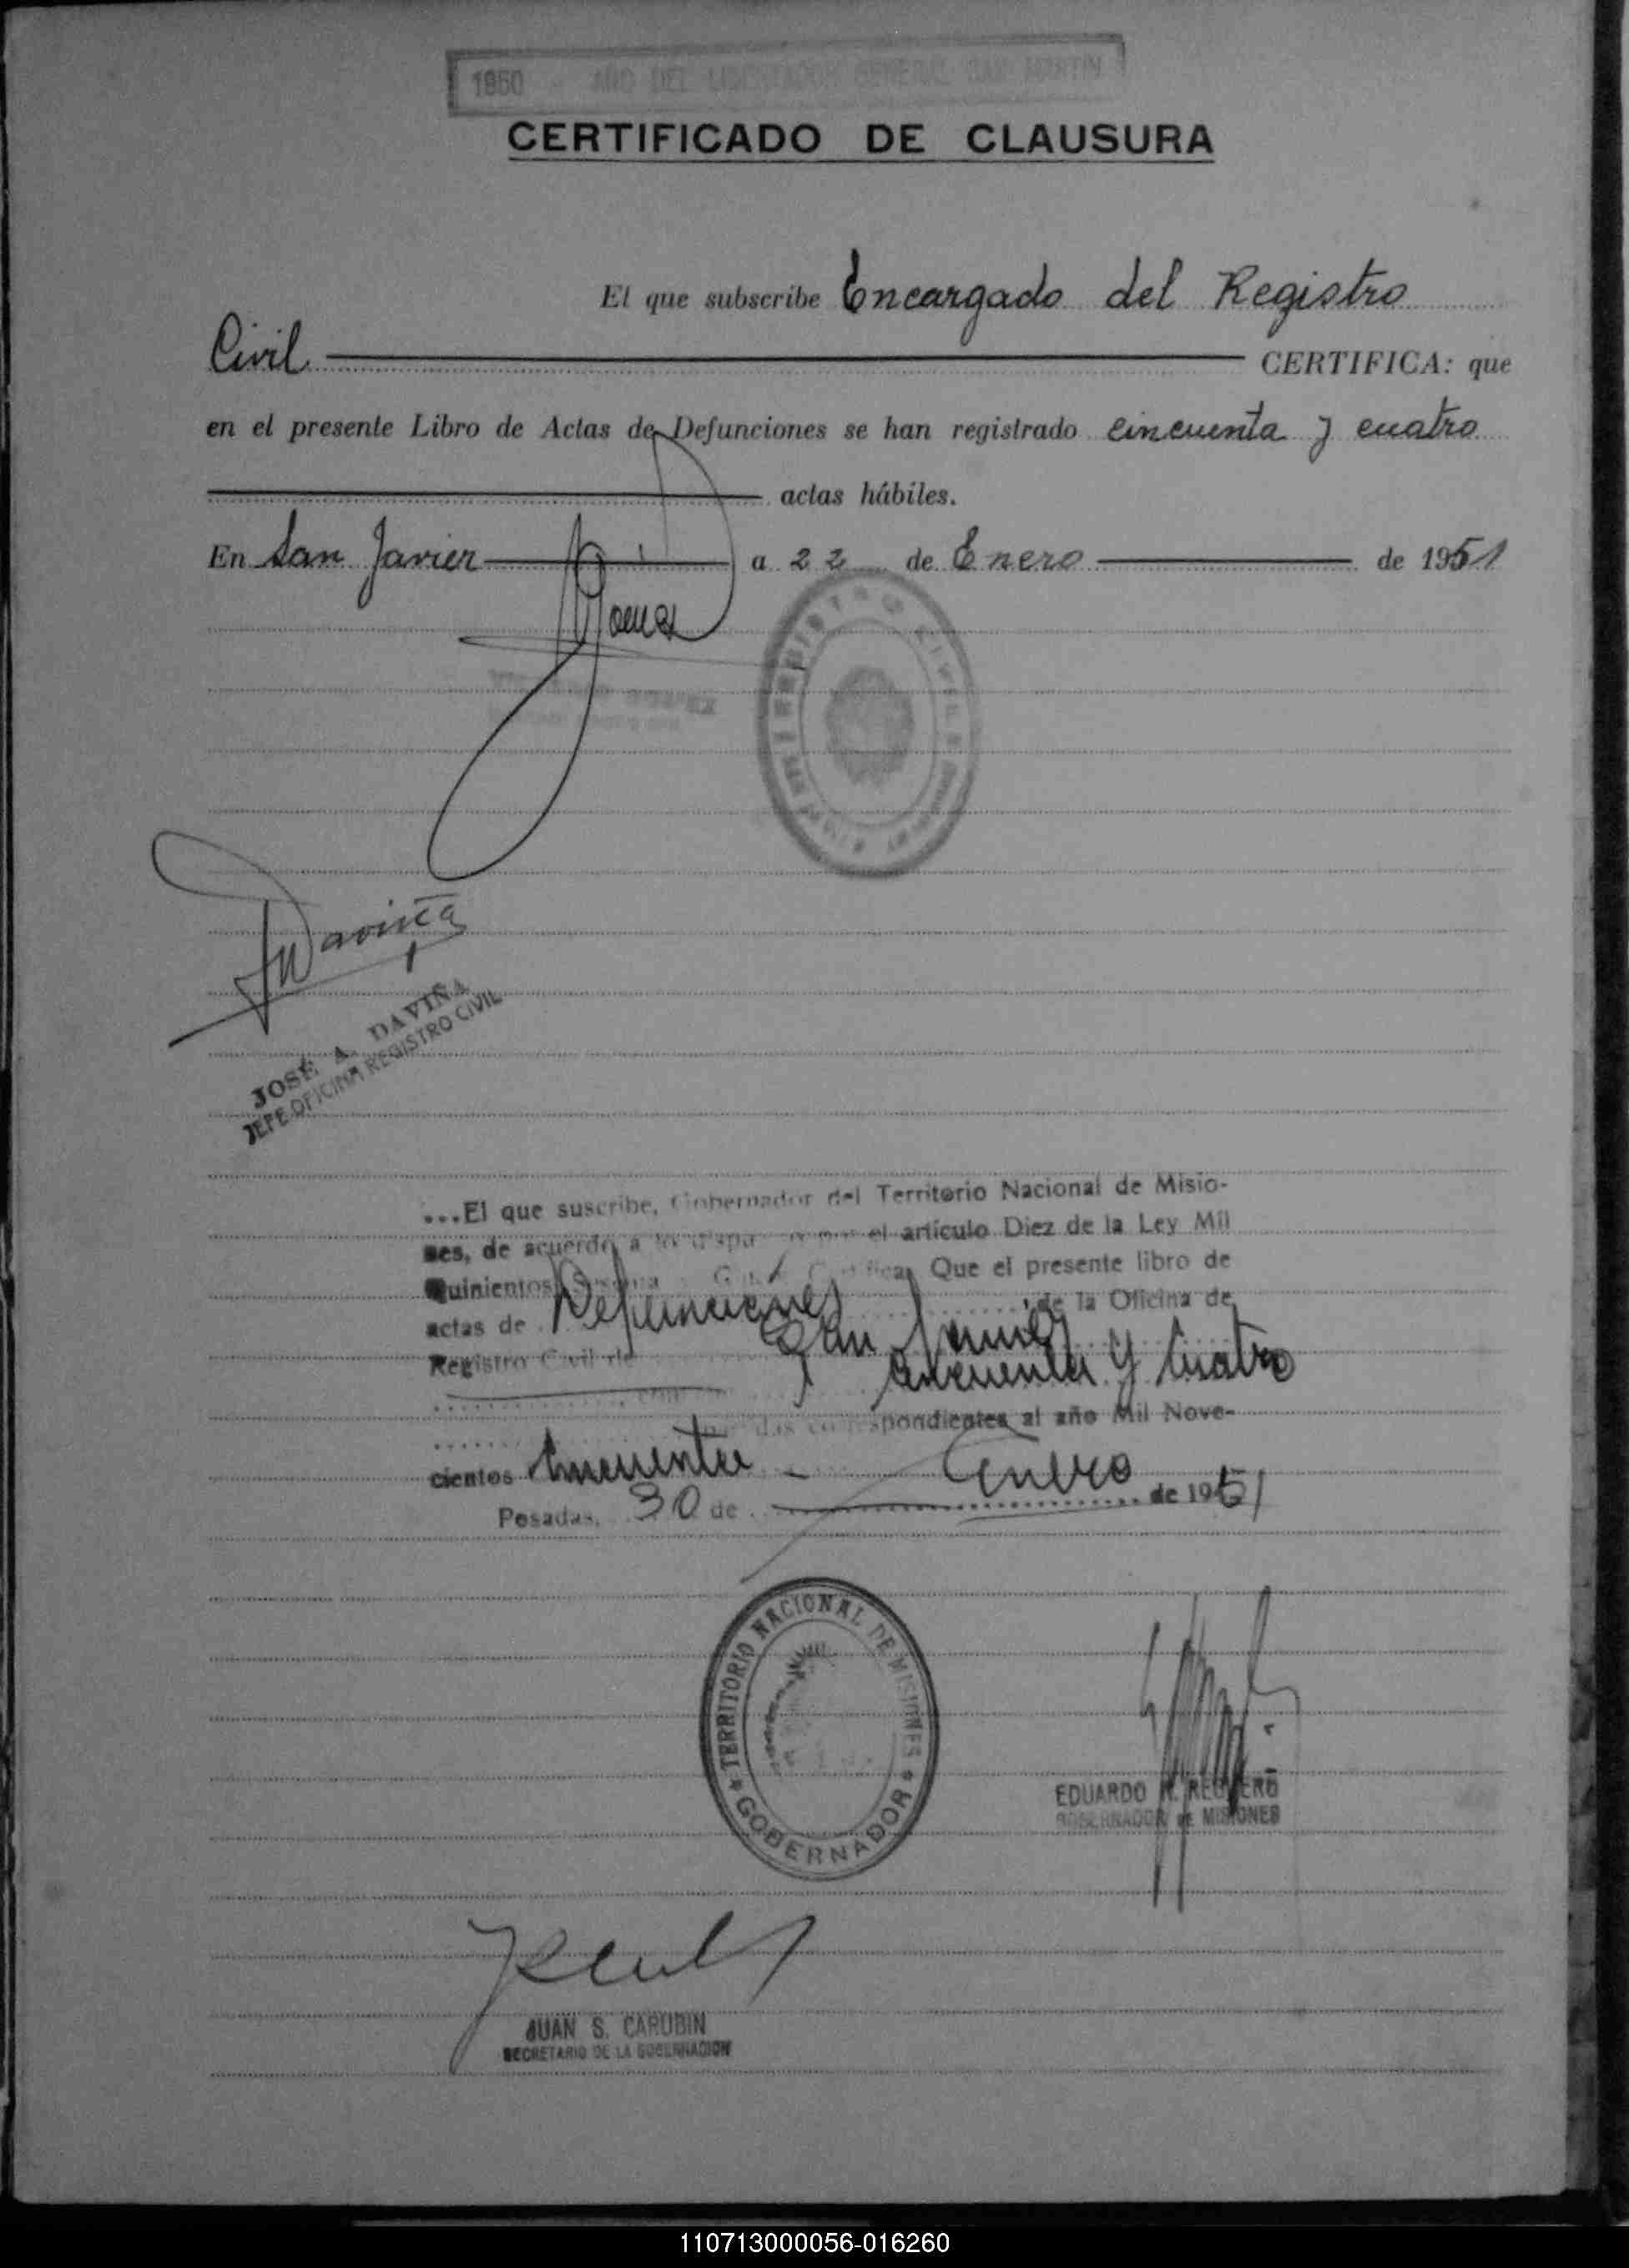 1950 - AÑO DEL LIBERTADOR GENERAL SAN MARTIN
CERTIFICADO DE CLAUSURA
El que subscribe Encargado del Registro
Civil CERTIFICA: que
en el presente Libro de Actas de Defunciones se han registrado cincuenta y cuatro
actas hábiles.
En San Javier a 22 de Enero de 1951
REGISTRO CIVIL
Daviña
JOSÉ A. DAVIÑA
JEFE OFICINA REGISTRO CIVIL
...El que suscribe, Gobernador del Territorio Nacional de Misio-
nes, de acuerdo a lo el artículo Diez de la Ley Mil
Quinientos Que el presente libro de
actas de Defunciones de la Oficina de
Registro Civil de San Javier
con cincuenta y cuatro
correspondientes al año Mil Nove-
cientos cincuenta
Posadas, 30 de Enero de 1951
TERRITORIO NACIONAL DE MISIONES
GOBERNADOR
EDUARDO
GOBERNADOR DE MISIONES
JUAN S. CARUBIN
SECRETARIO DE LA GOBERNACION
110713000056-016260